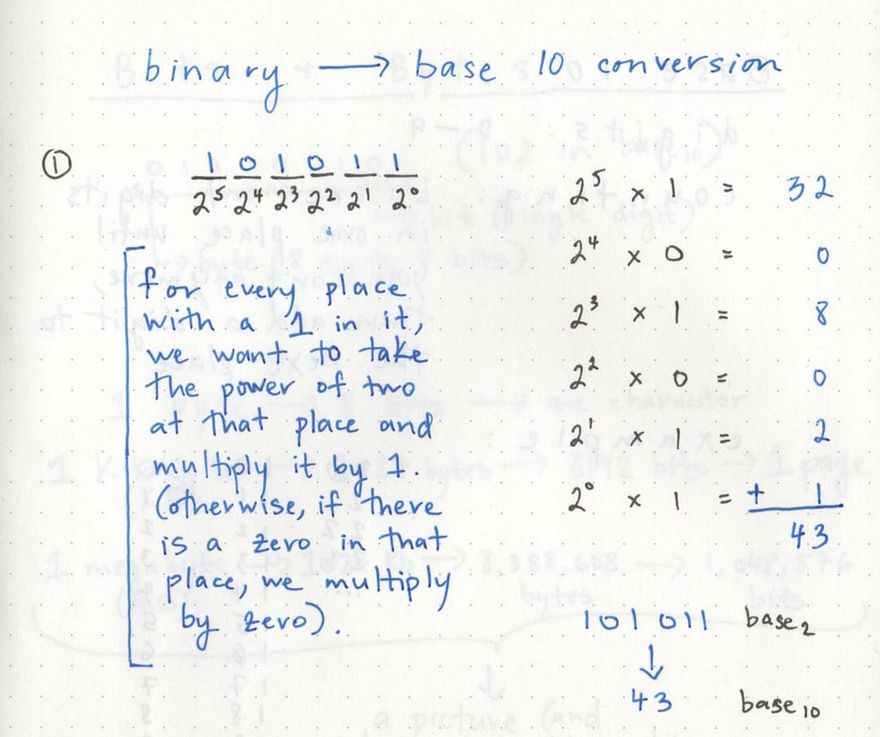 binary → base 10 conversion
① 1 0 1 0 1 1
2⁵ 2⁴ 2³ 2² 2¹ 2⁰
for every place
with a 1 in it,
we want to take
the power of two
at that place and
multiply it by 1.
(otherwise, if there
is a zero in that
place, we multiply
by zero).
2⁵ x 1 = 32
2⁴ x 0 = 0
2³ x 1 = 8
2² x 0 = 0
2¹ x 1 = 2
2⁰ x 1 = + 1
43
101 011 base₂
↓
43 base₁₀